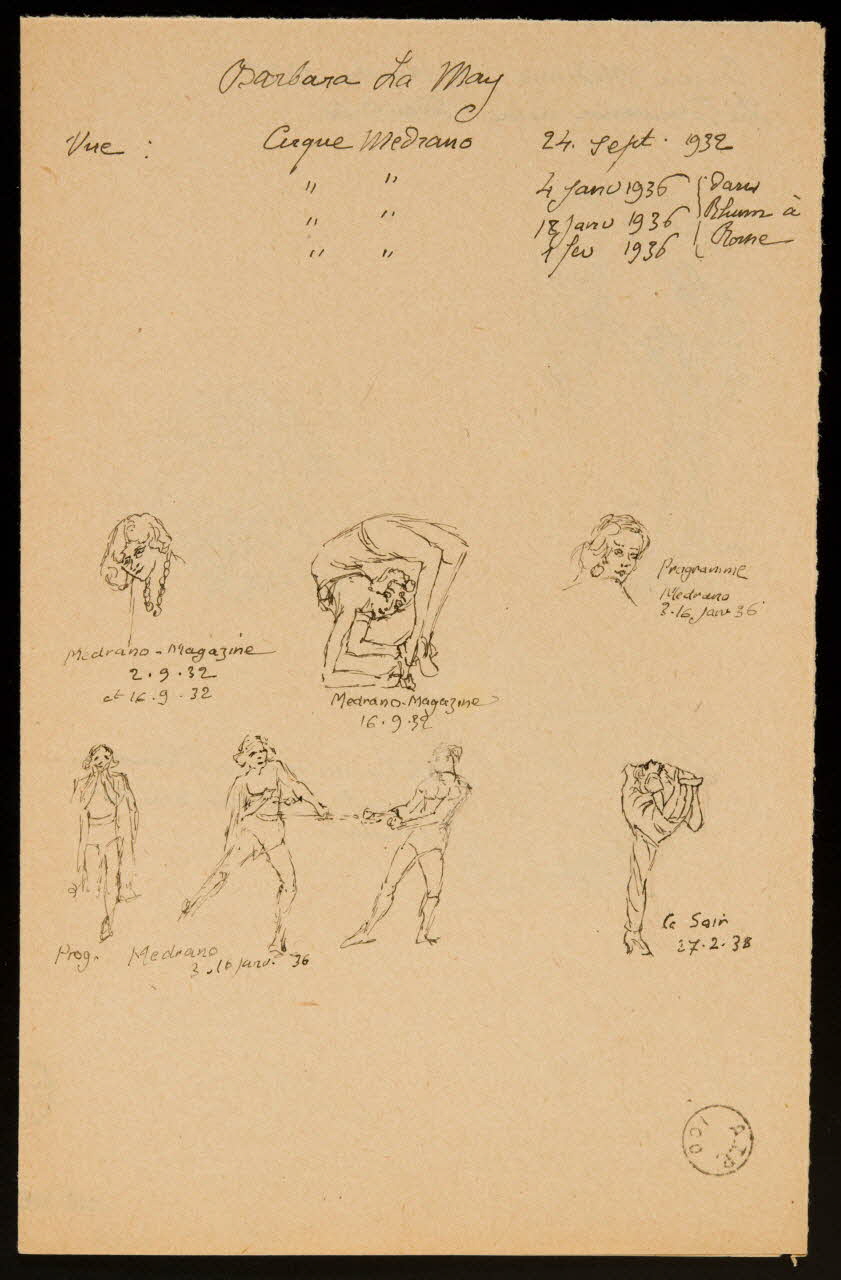 Barbara La May
Vue : Cirque Medrano 24. sept. 1932
" " 4 janv 1936 dans
" " 18 janv 1936 Rhum à
" " 1 fev 1936 Rome
Programme
Medrano
3.16. Janv 36
Medrano-Magazine
2.9.32
et 16.9.32
Medrano-Magazine
16.9.32
Prog. Medrano
3.16 janv. 36
Ce Soir
27.2.38
A.T.P.